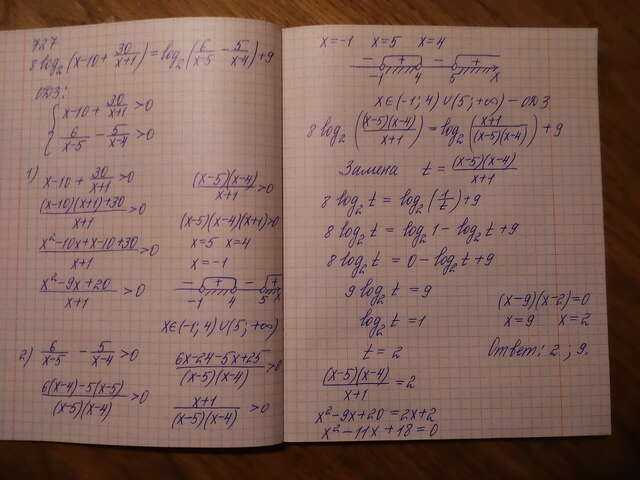 727
8 log₂(x-10+ 30/(x+1)) = log₂(6/(x-5) - 5/(x-4)) + 9
ОДЗ:
{ x-10+ 30/(x+1) > 0
6/(x-5) - 5/(x-4) > 0
1) x-10+ 30/(x+1) > 0
((x-10)(x+1)+30)/(x+1) > 0
(x²-10x+x-10+30)/(x+1) > 0
(x²-9x+20)/(x+1) > 0
(x-5)(x-4)/(x+1) > 0
(x-5)(x-4)(x+1)>0
x=5 x=4
x=-1
- + - +
-1 4 5 x
x∈(-1;4)∪(5;+∞)
2) 6/(x-5) - 5/(x-4) > 0
(6(x-4)-5(x-5))/((x-5)(x-4)) > 0
(6x-24-5x+25)/((x-5)(x-4)) > 0
(x+1)/((x-5)(x-4)) > 0
x=-1 x=5 x=4
- + - +
-1 4 5 x
x∈(-1;4)∪(5;+∞) - ОДЗ
8 log₂((x-5)(x-4)/(x+1)) = log₂((x+1)/((x-5)(x-4))) + 9
Замена t = (x-5)(x-4)/(x+1)
8 log₂t = log₂(1/t) + 9
8 log₂t = log₂1 - log₂t + 9
8 log₂t = 0 - log₂t + 9
9 log₂t = 9
log₂t = 1
t = 2
(x-5)(x-4)/(x+1) = 2
x²-9x+20 = 2x+2
x²-11x+18=0
(x-9)(x-2)=0
x=9 x=2
Ответ: 2; 9.